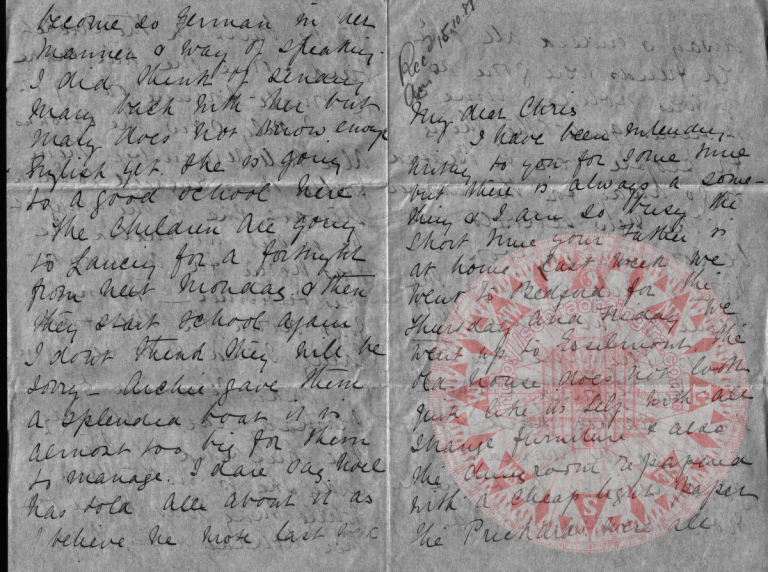 become so German in her
manner & way of speaking.
I did think of sending
Mary back with her but
Mary does not know enough
English yet. She is going
to a good school here.
The children are going
to Lancing for a fortnight
from next Monday & then
they start school again
I dont think they will be
sorry – Archie gave them
a splendid boat it is
almost too big for them
to manage. I dare say Noel
has told all about it as
I believe he wrote last week
Recd 15.10.
My dear Chris
I have been intending
writing to you for some time
but there is always a some-
thing & I am so busy the
short time your Father is
at home. Last week we
went to Bedford for the
Thursday and Friday we
went up to the
old house does not look
quite like its self with all
strange furniture & also
the dining room repapered
with a cheap light paper
The Prichards were all